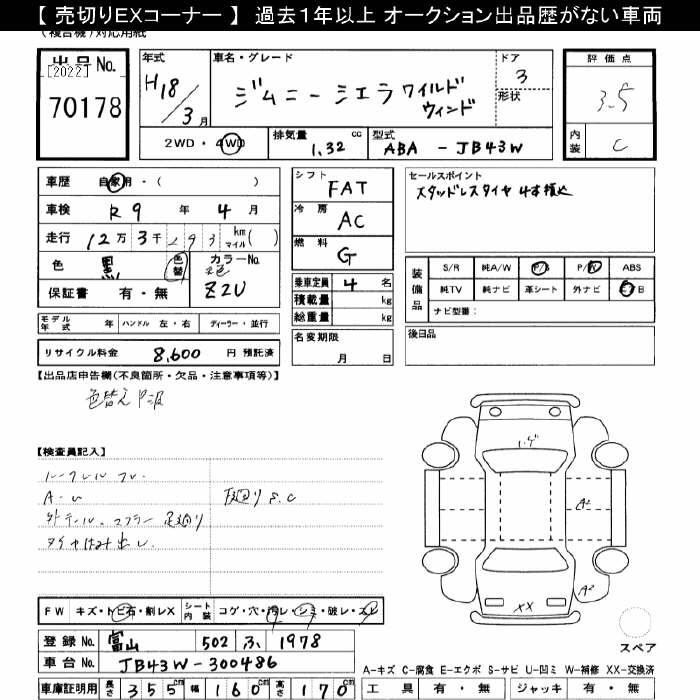 【 売切りEXコーナー 】 過去1年以上 オークション出品歴がない車両
(複合機)対応用紙
出品No.
[2022]
70178
年式
H18/3月
車名・グレード
ジムニーシエラ ワイルドウィンド
ドア
3
形状
評価点
3.5
2WD・4WD
排気量
1.32 cc
型式
ABA - JB43W
内装
C
車歴 自家用・( )
車検 R9 年 4 月
走行 12万 3千 293 km マイル ( )
色 黒 色替 カラーNo. Z2U
保証書 有・無
シフト FAT
冷房 AC
燃料 G
乗車定員 4 名
積載量 kg
総重量 kg
セールスポイント
スタッドレスタイヤ 4本積込
装備品
S/R 純A/W P/S P/W ABS
純TV 純ナビ 革シート 外ナビ B
ナビ型番:
モデル年式 年 ハンドル 左・右 ディーラー・並行
リサイクル料金 8,600 円 預託済
名変期限
月 日
後日品
【出品店申告欄(不良箇所・欠品・注意事項等)】
色替え
【検査員記入】
A-U
下廻り S.C
外テール、マフラー 足廻り
タイヤはみ出し
A2
A2
XX
FW キズ・トビ石・割レX シート内装 コゲ・穴・切レ・シミ・破レ・スレ
登録No. 富山 502 ふ 1978
車台No. JB43W-300486
車庫証明用 長さ 355cm 幅 160cm 高さ 170cm
スペア
A-キズ C-腐食 E-エクボ S-サビ U-凹ミ W-補修 XX-交換済
工具 有・無 ジャッキ 有・無